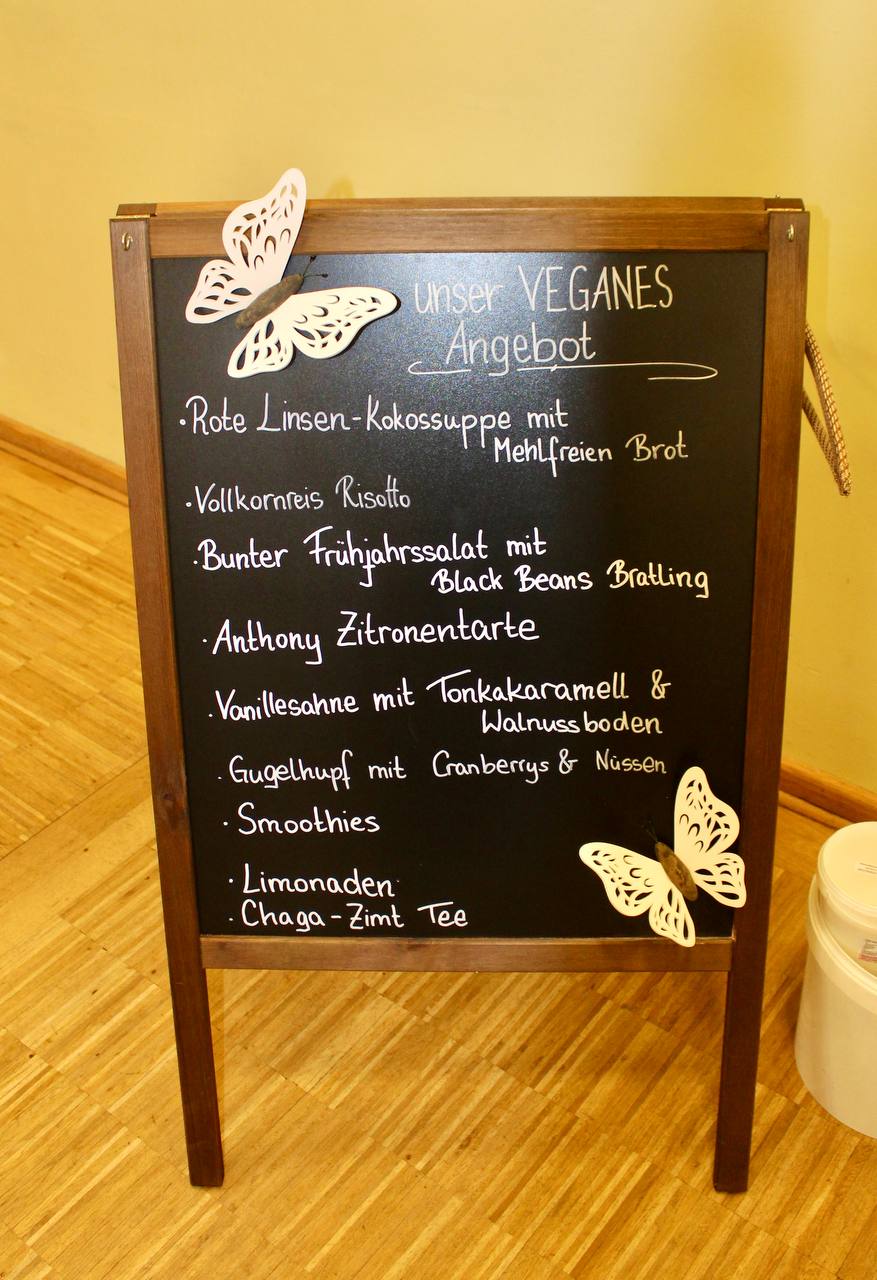 unser VEGANES
Angebot
·Rote Linsen-Kokossuppe mit
Mehlfreien Brot
·Vollkornreis Risotto
·Bunter Frühjahrssalat mit
Black Beans Bratling
·Anthony Zitronentarte
·Vanillesahne mit Tonkakaramell &
Walnussboden
·Gugelhupf mit Cranberrys & Nüssen
·Smoothies
·Limonaden
·Chaga-Zimt Tee